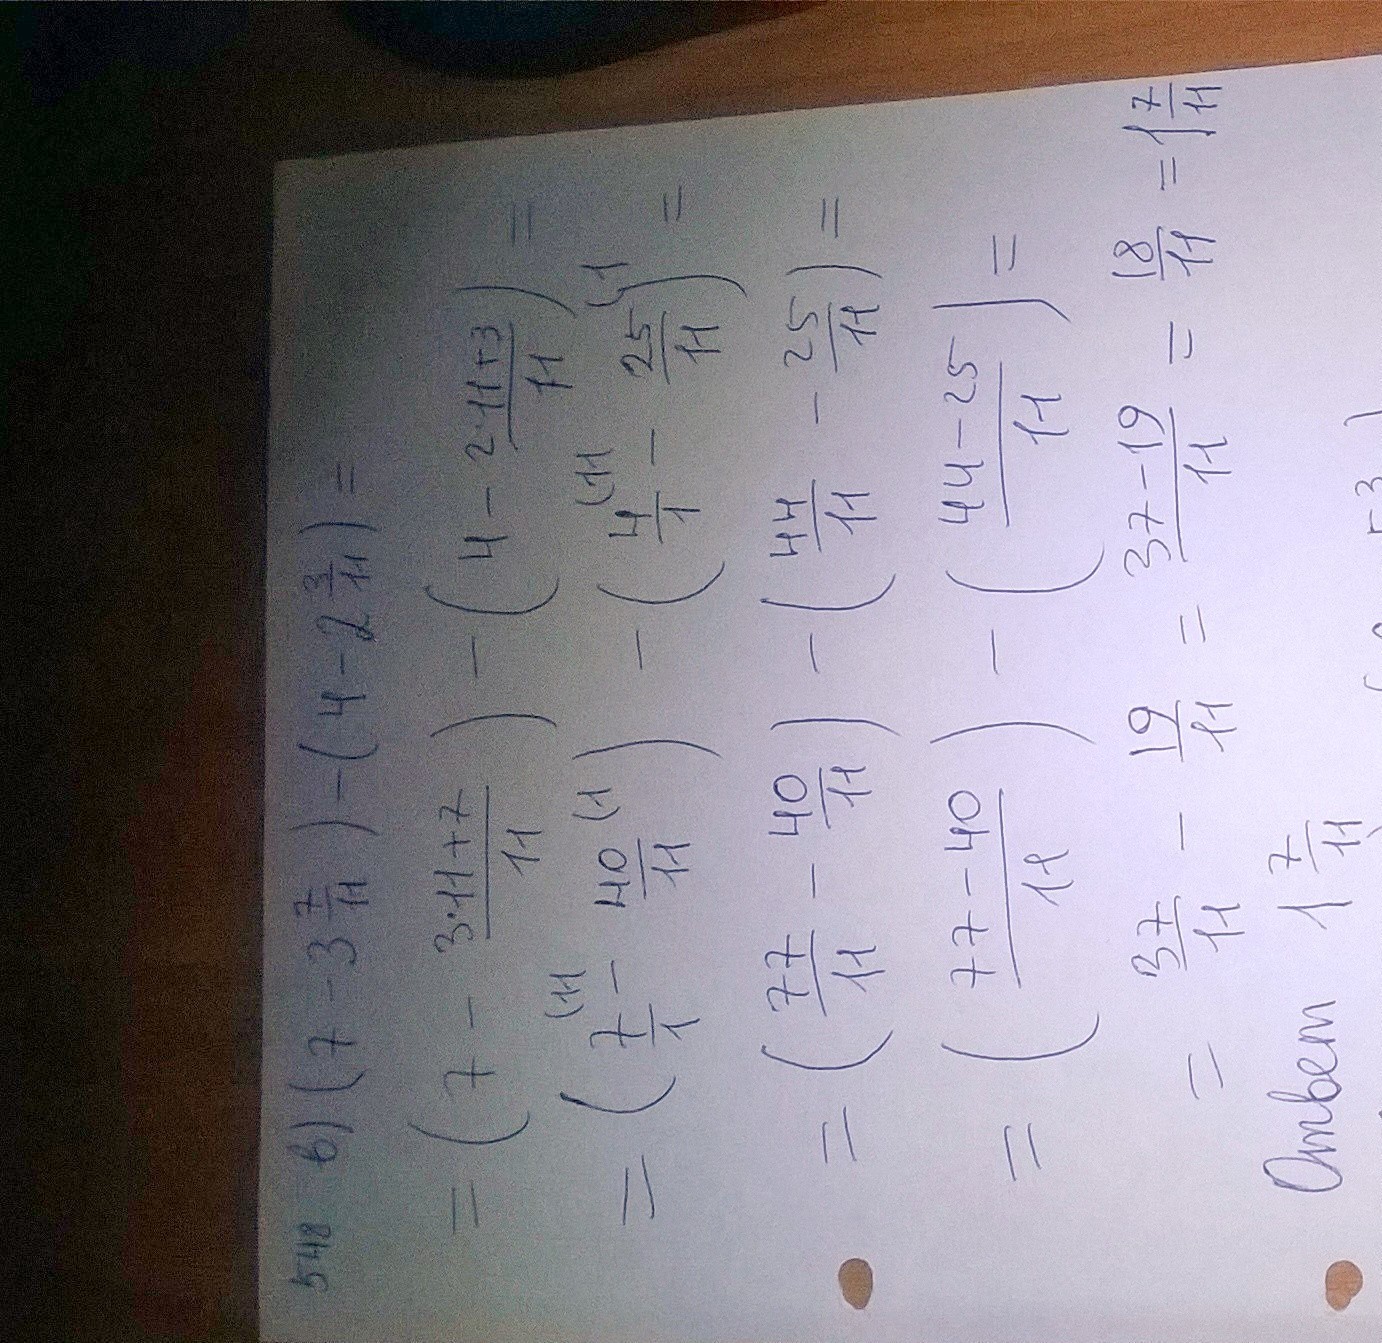 548 в) (7 - 3 7/11) - (4 - 2 3/11) =
= (7 - 3·11+7/11) - (4 - 2·11+3/11) =
= (7/1 (11 - 40/11 (1) - (4/1 (11 - 25/11 (1) =
= (77/11 - 40/11) - (44/11 - 25/11) =
= (77-40/11) - (44-25/11) =
= 37/11 - 19/11 = 37-19/11 = 18/11 = 1 7/11
Ответ 1 7/11